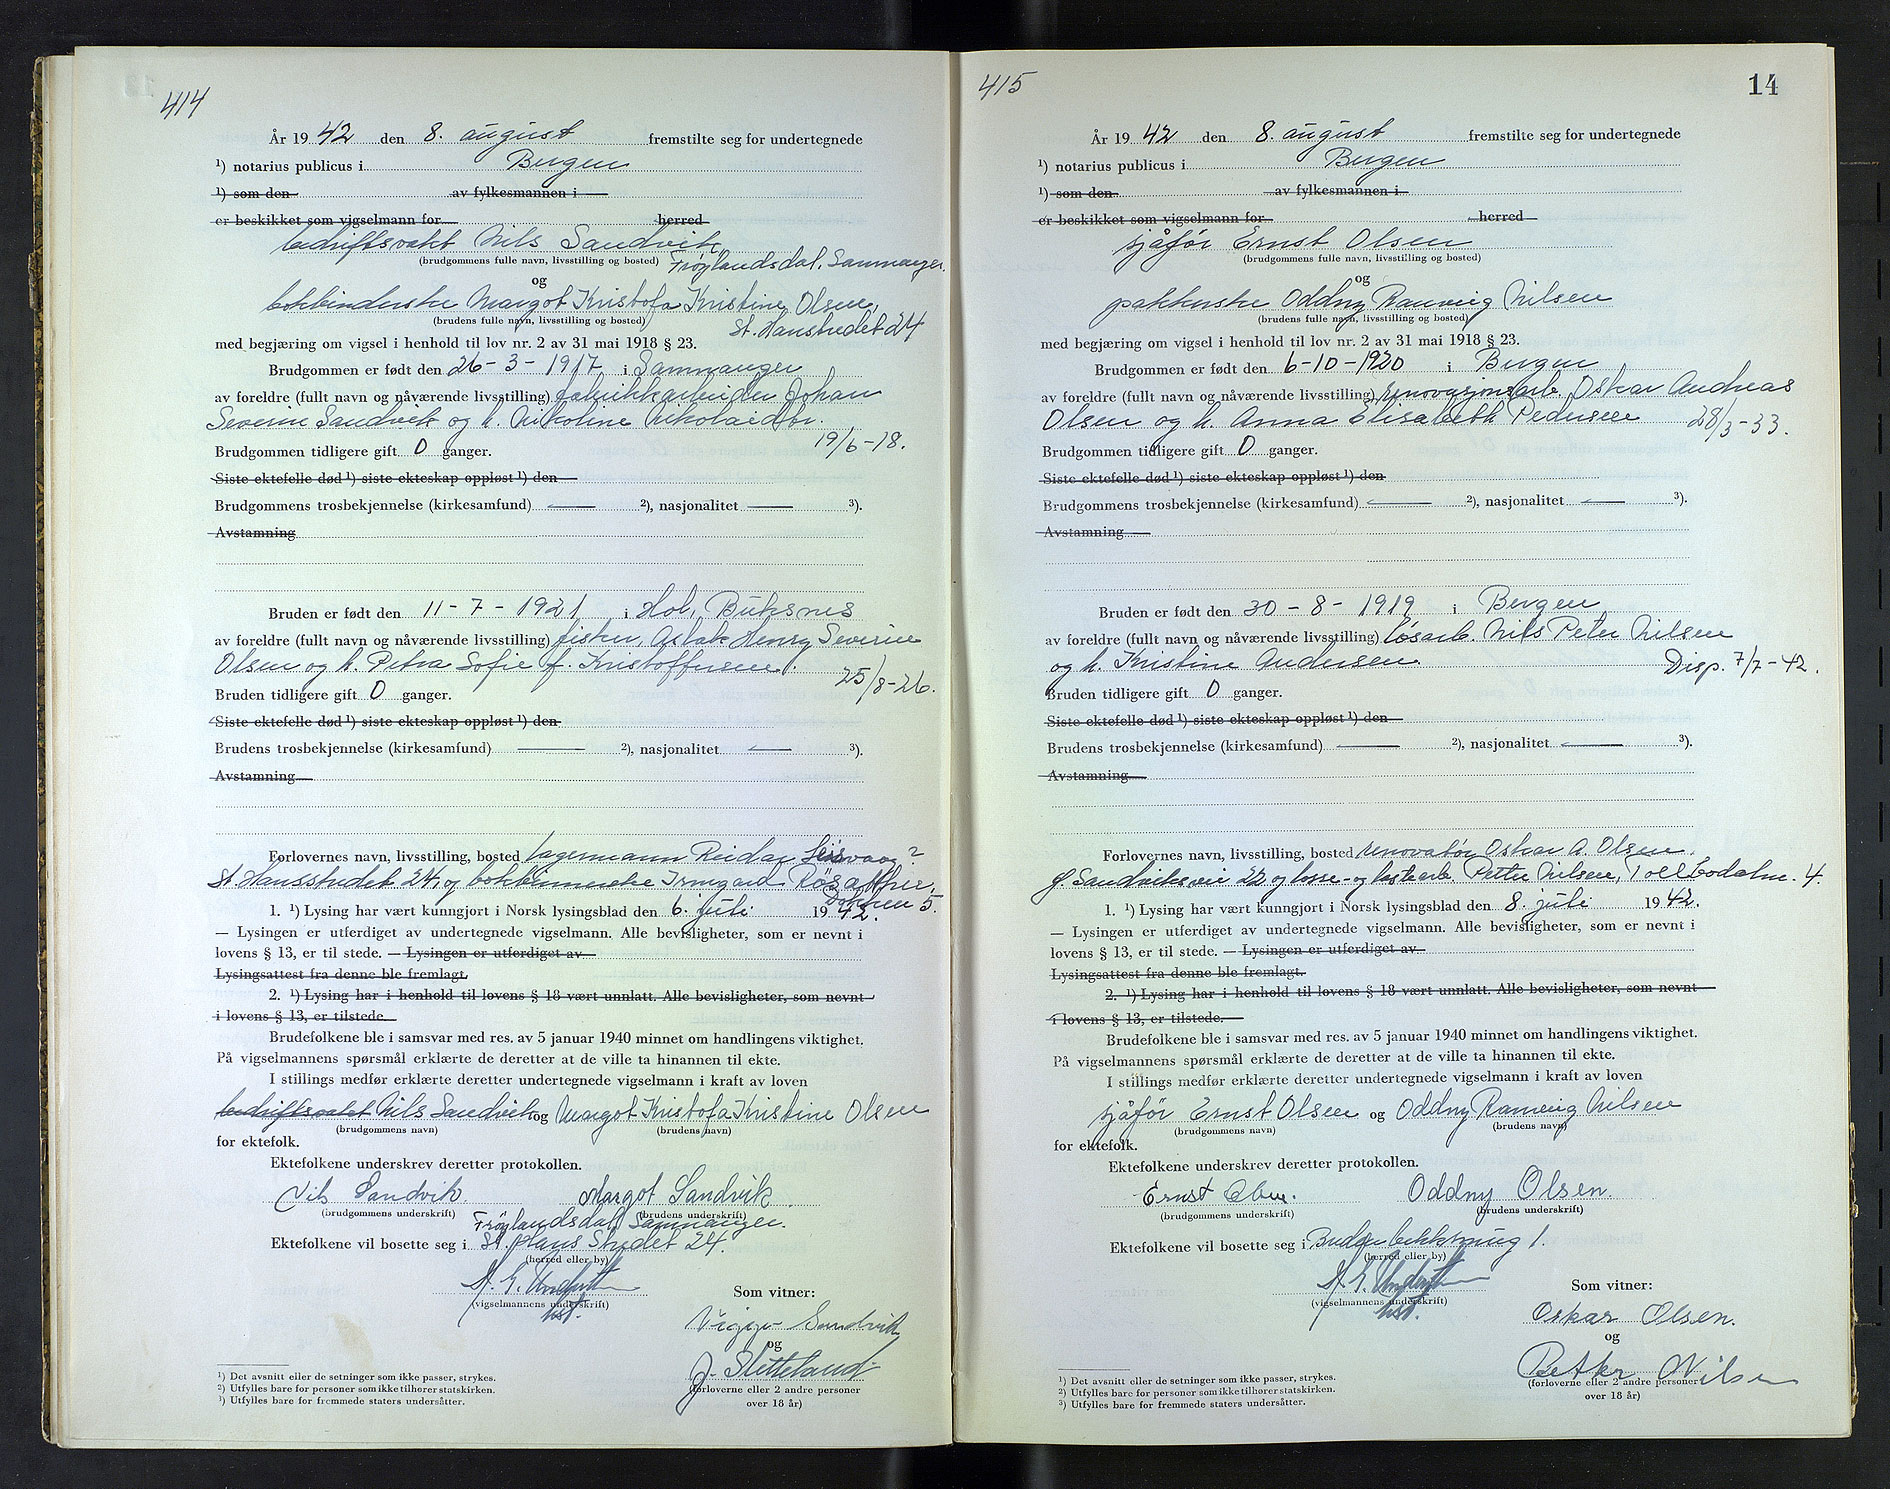 414
År 1942 den 8. august fremstilte seg for undertegnede
¹) notarius publicus i Bergen
¹) som den av fylkesmannen i
er beskikket som vigselmann for herred
bedriftsvakt Nils Sandvik
(brudgommens fulle navn, livsstilling og bosted) Frøylandsdal, Samnanger.
og
bokbinderske Margot Kristofa Kristine Olsen,
(brudens fulle navn, livsstilling og bosted) St. Hansstredet 24
med begjæring om vigsel i henhold til lov nr. 2 av 31 mai 1918 § 23.
Brudgommen er født den 26-3-1917 i Samnanger
av foreldre (fullt navn og nåværende livsstilling) fabrikkarbeider Johan
Severin Sandvik og h. Nikoline Nikolaidtr.
19/6-18.
Brudgommen tidligere gift 0 ganger.
Siste ektefelle død ¹) siste ekteskap oppløst ¹) den
Brudgommens trosbekjennelse (kirkesamfund) — ²), nasjonalitet — ³).
Avstamning
Bruden er født den 11-7-1921 i Hol, Buksnes
av foreldre (fullt navn og nåværende livsstilling) fisker, Aslak Henry Severin
Olsen og h. Petra Sofie f. Kristoffersen.
25/8-26.
Bruden tidligere gift 0 ganger.
Siste ektefelle død ¹) siste ekteskap oppløst ¹) den
Brudens trosbekjennelse (kirkesamfund) — ²), nasjonalitet — ³).
Avstamning
Forlovernes navn, livsstilling, bosted lagermann Reidar
St. Hansstredet 24, og Irmgard
5.
1. ¹) Lysing har vært kunngjort i Norsk lysingsblad den 6. juli 1942.
— Lysingen er utferdiget av undertegnede vigselmann. Alle bevisligheter, som er nevnt i
lovens § 13, er til stede. — Lysingen er utferdiget av
Lysingsattest fra denne ble fremlagt.
2. ¹) Lysing har i henhold til lovens § 18 vært unnlatt. Alle bevisligheter, som nevnt
i lovens § 13, er tilstede.
Brudefolkene ble i samsvar med res. av 5 januar 1940 minnet om handlingens viktighet.
På vigselmannens spørsmål erklærte de deretter at de ville ta hinannen til ekte.
I stillings medfør erklærte deretter undertegnede vigselmann i kraft av loven
bedriftsvakt Nils Sandvik og Margot Kristofa Kristine Olsen
(brudgommens navn) (brudens navn)
for ektefolk.
Ektefolkene underskrev deretter protokollen.
Nils Sandvik. Margot Sandvik.
(brudgommens underskrift) (brudens underskrift)
Frøylandsdal, Samnanger.
Ektefolkene vil bosette seg i St. Hans Stredet 24.
(herred eller by)
(vigselmannens underskrift)
Som vitner:
Sandvik
og
J. Sletteland
(forloverne eller 2 andre personer
over 18 år)
¹) Det avsnitt eller de setninger som ikke passer, strykes.
²) Utfylles bare for personer som ikke tilhører statskirken.
³) Utfylles bare for fremmede staters undersåtter.
415
14
År 1942 den 8. august fremstilte seg for undertegnede
¹) notarius publicus i Bergen
¹) som den av fylkesmannen i
er beskikket som vigselmann for herred
sjåfør Ernst Olsen
(brudgommens fulle navn, livsstilling og bosted)
og
pakkerske Oddny Ranveig Nilsen
(brudens fulle navn, livsstilling og bosted)
med begjæring om vigsel i henhold til lov nr. 2 av 31 mai 1918 § 23.
Brudgommen er født den 6-10-1920 i Bergen
av foreldre (fullt navn og nåværende livsstilling) renovasjonsarb. Oskar Andreas
Olsen og h. Anna Elisabeth Pedersen
28/3-33.
Brudgommen tidligere gift 0 ganger.
Siste ektefelle død ¹) siste ekteskap oppløst ¹) den
Brudgommens trosbekjennelse (kirkesamfund) — ²), nasjonalitet — ³).
Avstamning
Bruden er født den 30-8-1919 i Bergen
av foreldre (fullt navn og nåværende livsstilling) løsarb. Nils Peter Nilsen
og h. Kristine Andersen.
Disp. 7/7-42.
Bruden tidligere gift 0 ganger.
Siste ektefelle død ¹) siste ekteskap oppløst ¹) den
Brudens trosbekjennelse (kirkesamfund) — ²), nasjonalitet — ³).
Avstamning
Forlovernes navn, livsstilling, bosted renovatør Oskar A. Olsen,
Sandviksvei 22 og losse- og lastearb. Petter Nilsen, Tollbodalm. 4.
1. ¹) Lysing har vært kunngjort i Norsk lysingsblad den 8. juli 1942.
— Lysingen er utferdiget av undertegnede vigselmann. Alle bevisligheter, som er nevnt i
lovens § 13, er til stede. — Lysingen er utferdiget av
Lysingsattest fra denne ble fremlagt.
2. ¹) Lysing har i henhold til lovens § 18 vært unnlatt. Alle bevisligheter, som nevnt
i lovens § 13, er tilstede.
Brudefolkene ble i samsvar med res. av 5 januar 1940 minnet om handlingens viktighet.
På vigselmannens spørsmål erklærte de deretter at de ville ta hinannen til ekte.
I stillings medfør erklærte deretter undertegnede vigselmann i kraft av loven
sjåfør Ernst Olsen og Oddny Ranveig Nilsen
(brudgommens navn) (brudens navn)
for ektefolk.
Ektefolkene underskrev deretter protokollen.
Ernst Olsen. Oddny Olsen.
(brudgommens underskrift) (brudens underskrift)
Ektefolkene vil bosette seg i 1.
(herred eller by)
(vigselmannens underskrift)
Som vitner:
Oskar Olsen.
og
Petter Nilsen
(forloverne eller 2 andre personer
over 18 år)
¹) Det avsnitt eller de setninger som ikke passer, strykes.
²) Utfylles bare for personer som ikke tilhører statskirken.
³) Utfylles bare for fremmede staters undersåtter.